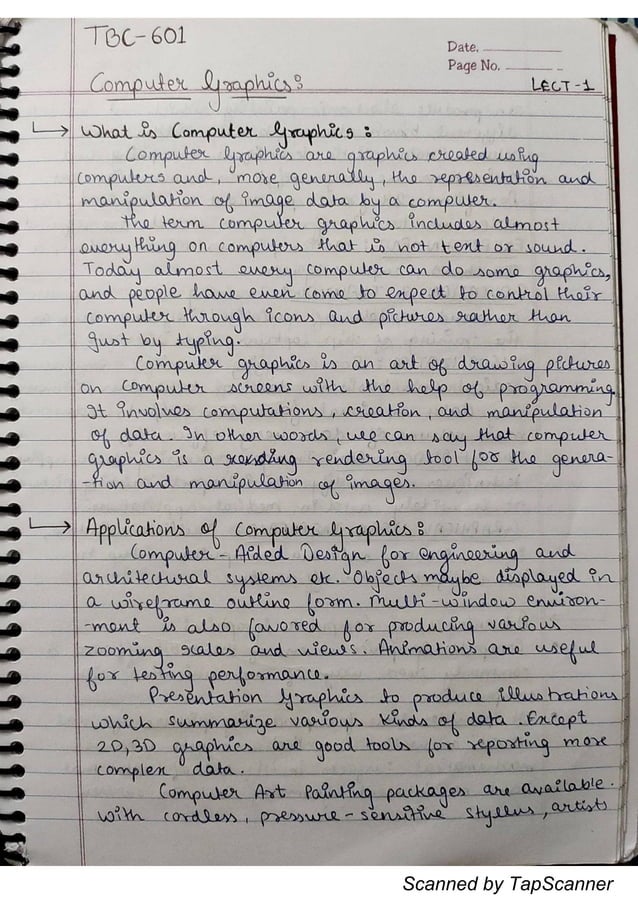 TBC-601
Date.
Page No.
Computer Graphics:
LECT-1
What is Computer Graphics:
Computer Graphics are graphics created using
computers and, more generally, the representation and
manipulation of image data by a computer.
The term computer graphics includes almost
everything on computers that is not text or sound.
Today almost every computer can do some graphics,
and people have even come to expect to control their
computer through icons and pictures rather than
just by typing.
Computer graphics is an art of drawing pictures
on computer screens with the help of programming.
It involves computations, creation, and manipulation
of data. In other words, we can say that computer
graphics is a rendering tool for the genera-
-tion and manipulation of images.
Applications of Computer Graphics:
Computer-Aided Design for engineering and
architectural systems etc. Objects maybe displayed in
a wireframe outline form. Multi-window environ-
-ment is also favored for producing various
zooming scales and views. Animations are useful
for testing performance.
Presentation Graphics to produce illustrations
which summarize various kinds of data. Except
2D, 3D graphics are good tools for reporting more
complex data.
Computer Art Painting packages are available.
with cordless, pressure-sensitive styllus, artists
Scanned by TapScanner